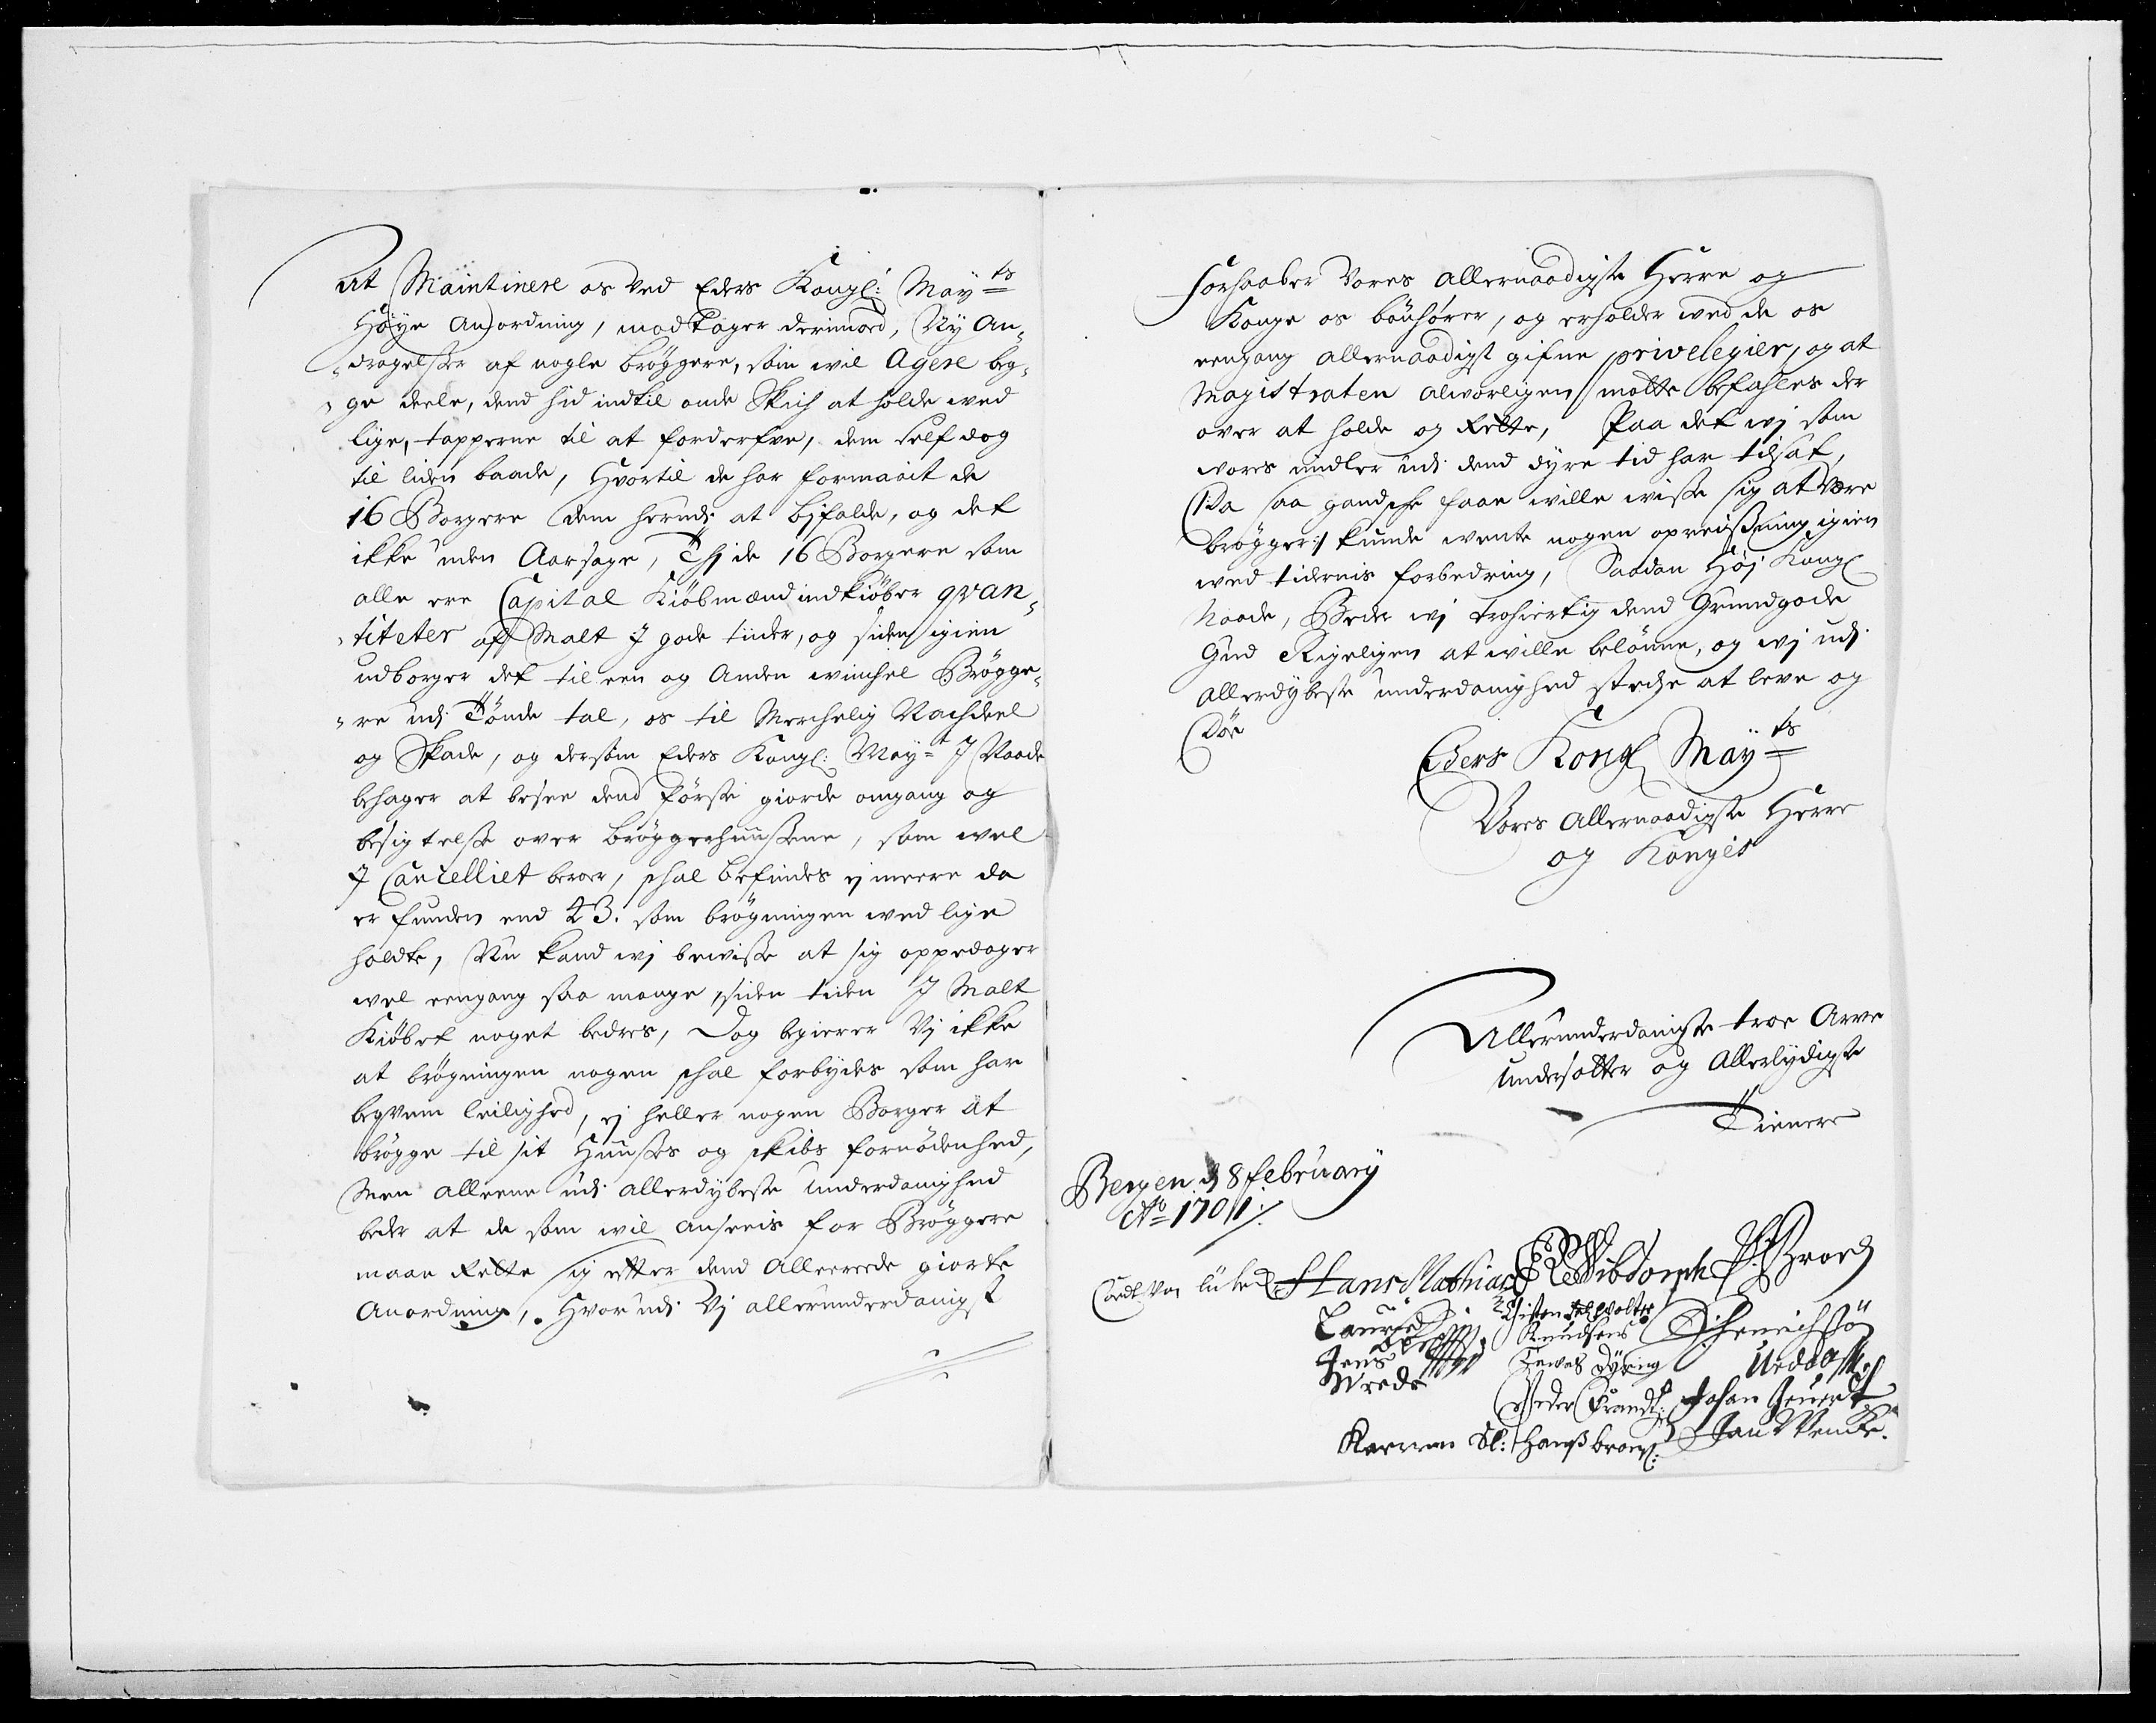 At Maintinere os ved Eders Kongl: Mayts
Høye Anordning, modtager derimod, Ny An¬
dragelsser af nogle brøggere, som vil Agere beg¬
ge deele, dend hid indtil onde Skich at holde ved
lige, tapperne til at forderfve, dem self dog
til liden baade, Hvortil de har formaait de
16 Borgere dem herudj at bifalde, og det
ikke uden Aarsage, Thj de 16 Borgere som
alle ere Capital Kiøbmænd indkiøber qvan¬
titeter af Malt J gode tiider, og siden igien
udborger det til een og Anden winchel Brøgge¬
re udj Tønde tal, os til Merchelig Nachdeel
og Skade, og dersom Eders Kongl: Mayt J Naade
behager at besee dend første giorde omgang og
besigtelsse over brøggerhuussene, som vel
J Cancelliet beroer, schal befindes ej meere da
er funden end 23. som brøgningen ved lige
holdte, Nu kand wj bevisse at sig oppedager
vel eengang saa mange, siden tiden J Malt
Kiøbet noget bedres, Dog begierer Vj ikke
at brøgningen nogen schal forbydes som har
beqvem leilighed, ej heller nogen Borger at
brøgge til sit Huusses og skibs fornødenhed,
Men alleene udj allerdybeste Underdanighed
beder at de som vil ansees for Brøggere
maae Rette sig efter dend Allereede giorte
Anordning, Hvorudj Vj allerunderdanigst
forhaaber Vores Allernaadigste Herre og
Konge os bønhører, og erholder ved de os
eengang allernaadigst gifne privelegier, og at
Magistraten alvorligen motte befahles der
over at holde og Rette, Paa det wj som
vores midler udj dend dyre tid har tilsat,
/:Da saa gandsche faae wille wisse sig at være
brøgger:/ kunde wente nogen opreisning igien
ved tidernis forbedring, Saadan Høj Kongl
Naade, Beder wj trohiertig dend Grundgode
Gud Rigeligen at wille belønne, og wj udj
allerdybeste underdanighed stedse at leve og
Døe
Eders Kongl Mayts
Vores Allernaadigste Herre
og Konges
Allerunderdanigste troe Arve
Undersotter og Allerlydigste
Tienere
Bergen d 8 february
Ao 1701/.
Cordt von Lüke Hans Mathias Wibdorph
Laurids
Knudsen D: Henrichssøn
Jens Tewes Dyring
Wrede Peder Frandtz: Johan Gewert
Karren Sl: Hanß Jan Wencke.